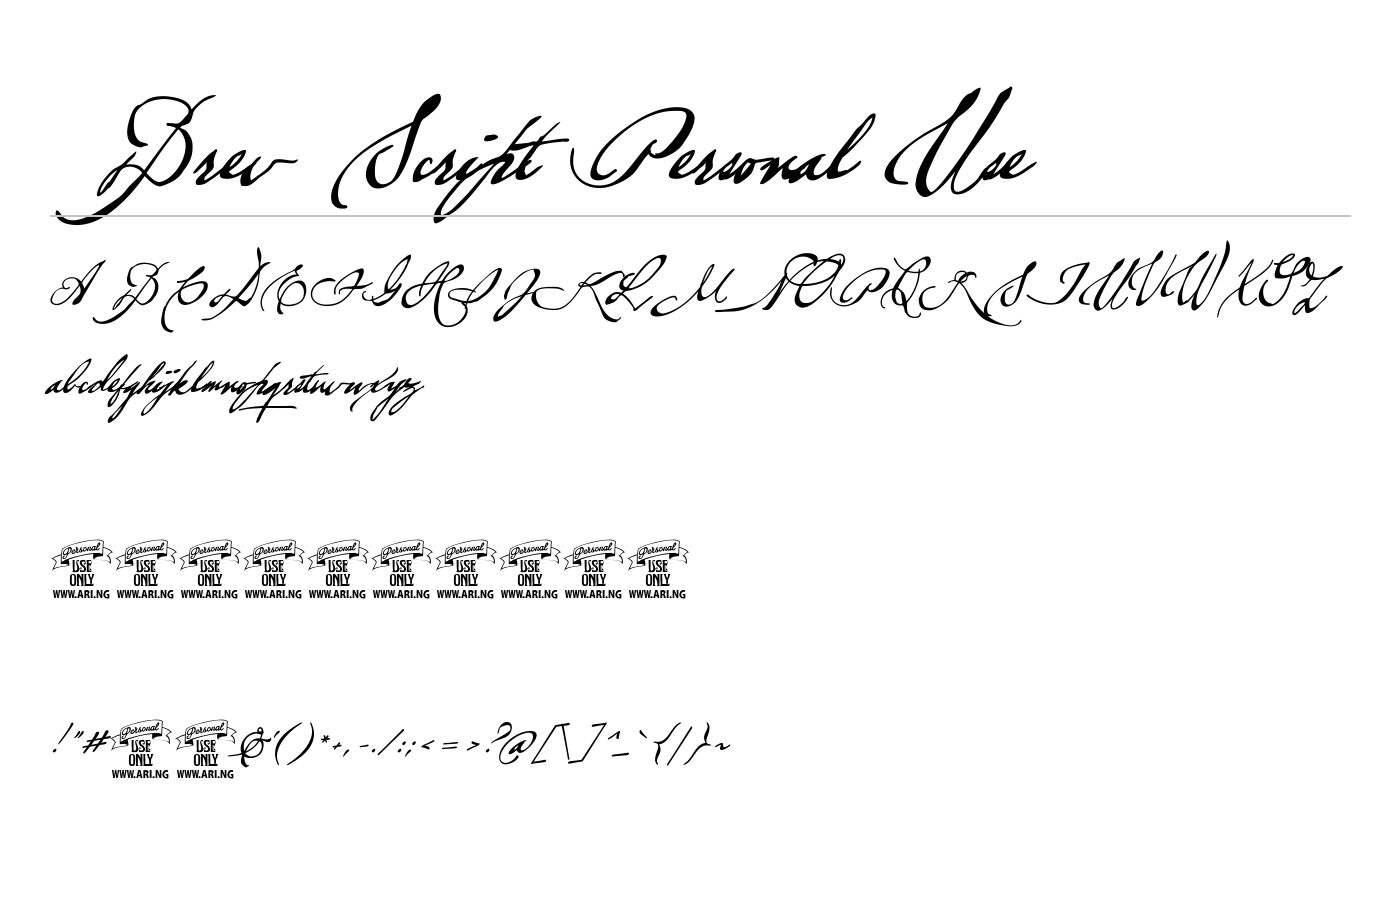 Brev Script Personal Use
A B C D E F G H I J K L M N O P Q R S T U V W X Y Z
abcdefghijklmnopqrstuvwxyz
Personal USE ONLY WWW.ARI.NG Personal USE ONLY WWW.ARI.NG Personal USE ONLY WWW.ARI.NG Personal USE ONLY WWW.ARI.NG Personal USE ONLY WWW.ARI.NG Personal USE ONLY WWW.ARI.NG Personal USE ONLY WWW.ARI.NG Personal USE ONLY WWW.ARI.NG Personal USE ONLY WWW.ARI.NG Personal USE ONLY WWW.ARI.NG
!"# Personal USE ONLY WWW.ARI.NG Personal USE ONLY WWW.ARI.NG &'()*+,-./:;<=>?@[\]^_`{|}~